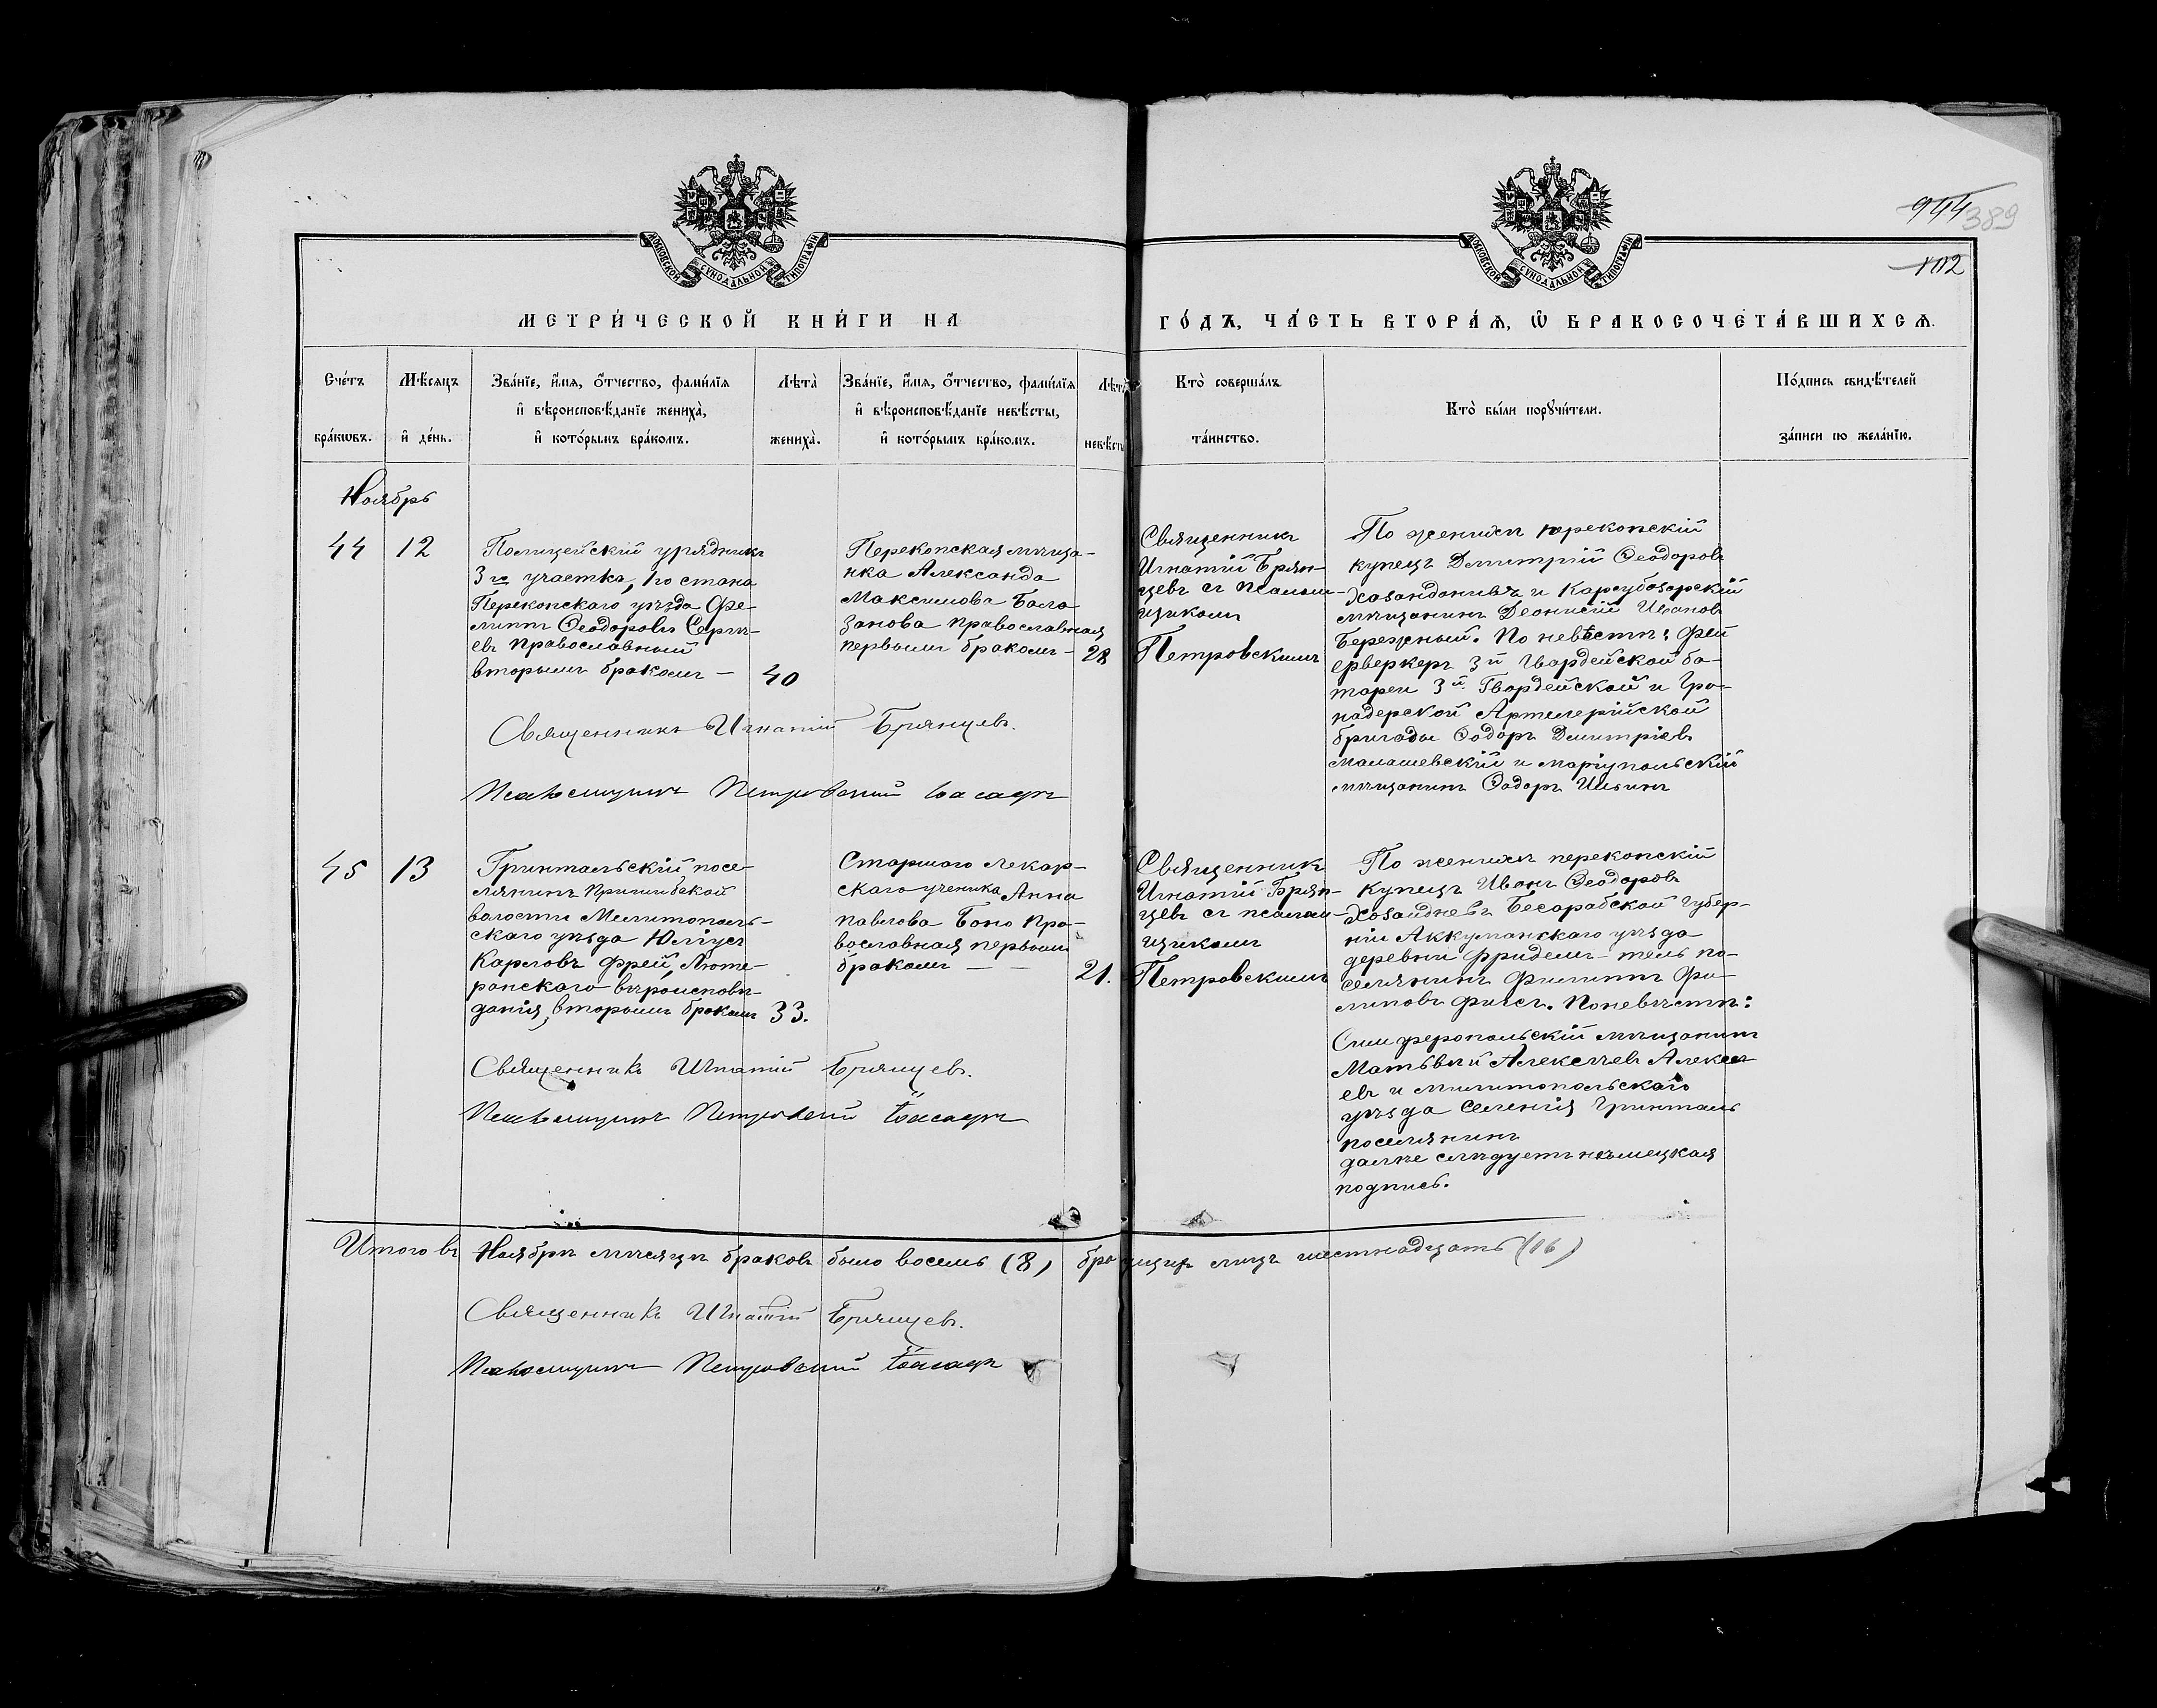 944 389
102
МОСКОВСКОЙ СУНОДАЛЬНОЙ ТИПОГРАФІИ
МОСКОВСКОЙ СУНОДАЛЬНОЙ ТИПОГРАФІИ
МЕТРИ́ЧЕСКОЙ КНИ́ГИ НА ГО́ДЪ, ЧА́СТЬ ВТОРА́Ѧ, Ѽ БРАКОСОЧЕТА́ВШИХСѦ.
Сче́тъ
бра́кѡвъ.
Мѣ́сяцъ
и҆ де́нь.
Зва́нїе, и҆́мя, ѻ҆́тчество, фами́лїя
и҆ вѣроисповѣ́данїе жениха̀,
и҆ кото́рымъ бра́комъ.
Лѣта̀
жениха̀.
Зва́нїе, и҆́мя, ѻ҆́тчество, фами́лїя
и҆ вѣроисповѣ́данїе невѣ́сты,
и҆ кото́рымъ бра́комъ.
Лѣта̀
невѣ́сты
Кто̀ соверша́лъ
та́инство.
Кто̀ бы́ли порꙋчи́тели.
По́дпись свидѣ́телей
за́писи по жела́нїю.
Ноябрь
44
12
Полицейскій урядникъ
3го участка, 1го стана
Перекопскаго уѣзда Фи-
липпъ Ѳеодоровъ Сергѣ-
евъ православный
вторымъ бракомъ –
40
Перекопская мѣща-
нка Александа
Максимова Бала
занова православная
первымъ бракомъ –
28
Священникъ
Игнатій Брян-
цевъ съ псалом-
щикомъ
Петровскимъ
По женихѣ перекопскій
купецъ Димитрій Ѳеодоровъ
Карасубазарскій
мѣщанинъ Деонисій Ивановъ
Бережный. По невѣстѣ: Фей
ерверкеръ 3й Гвардейской ба-
тареи 3й Гвардейской и Гре-
надерской Артилерійской
бригады Ѳодоръ Димитріевъ
Малашевскій и маріупольскій
мѣщанинъ Ѳодоръ
Священникъ Игнатій Брянцевъ.
Псаломщикъ Петровскій
45
13
Гринтальскій посе-
лянинъ Пришибской
волости Мелитополь-
скаго уѣзда Юліусъ
Карловъ Фрей, Люте-
ранскаго вѣроисповѣ-
данія, вторымъ бракомъ
33.
Старшаго лекар-
скаго ученика Анна
Павлова Боно Пра-
вославная первымъ
бракомъ – –
21.
Священникъ
Игнатій Брян-
цевъ съ псалом-
щикомъ
Петровскимъ
По женихѣ перекопскій
купецъ Иванъ Ѳеодоровъ
Бесарабской губер-
ніи Аккуманскаго уѣзда
деревни Фридем-таль по-
селянинъ Филиппъ Фи-
липовъ Фигсъ. По невѣстѣ:
Симферопольскій мѣщанинъ
Матьвѣй Алексѣевъ Алексѣ
евъ и мелитопольскаго
уѣзда селенія Гринталь
поселянинъ
далѣе слѣдуетъ нѣмецкая
подпись.
Священникъ Игнатій Брянцевъ.
Псаломщикъ Петровскій
Итого въ Ноябрѣ мѣсяцѣ браковъ было восемь (8) брачущихъ лицъ шестнадцать (16)
Священникъ Игнатій Брянцевъ.
Псаломщикъ Петровскій